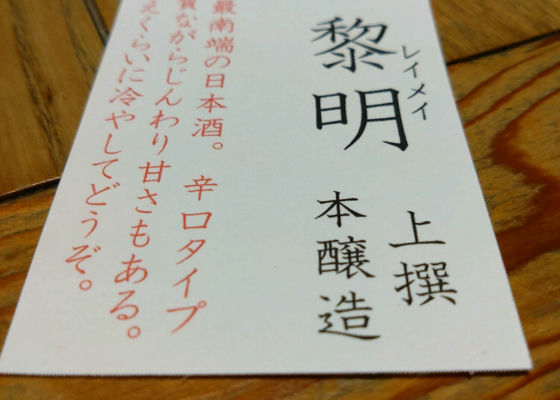 黎明
レイメイ
上撰
本醸造
最南端の日本酒。 辛口タイプ
質ながらじんわり甘さもある。
えくらいに冷やしてどうぞ。